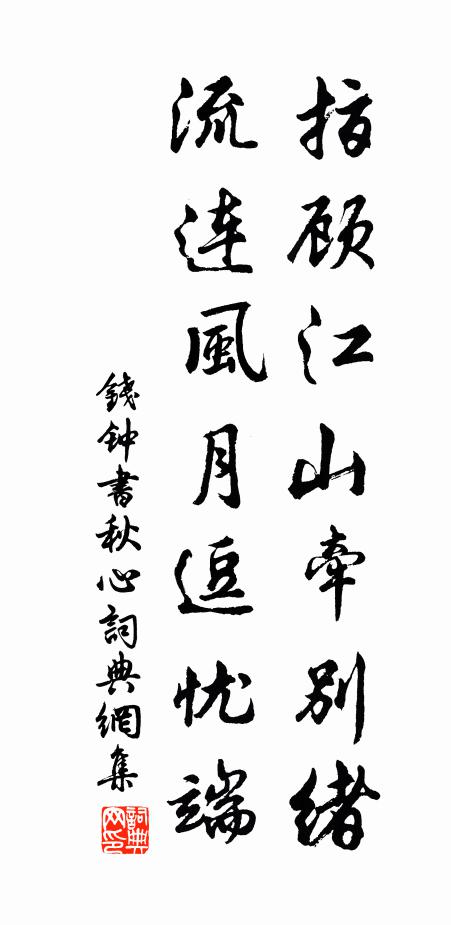 指顾江山牵别绪
流连風月逗忧端
錢钟書秋心詞典網集
詞典
网印